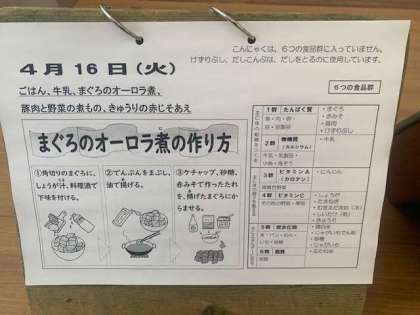 こんにゃくは、6つの食品群に入っていません。
けずりぶし、だしこんぶは、だしをとるのに使用しています。
4月16日(火)
ごはん、牛乳、まぐろのオーロラ煮、
豚肉と野菜の煮もの、きゅうりの赤じそあえ
6つの食品群
まぐろのオーロラ煮の作り方
①角切りのまぐろに、
しょうが汁、料理酒で
下味を付ける。
②でんぷんをまぶし、
油で揚げる。
③ケチャップ、砂糖、
赤みそで作ったたれ
を、揚げたまぐろにか
らませる。
1群 たんぱく質
・まぐろ
・赤みそ
・豚肉
・けずりぶし
2群
・牛乳
牛乳・乳製品
3群 ビタミンA
(カロテン)
・にんじん
緑黄色野菜
4群 ビタミンC
・しょうが
・たまねぎ
・きゅうり
5群 炭水化物
6群 脂質